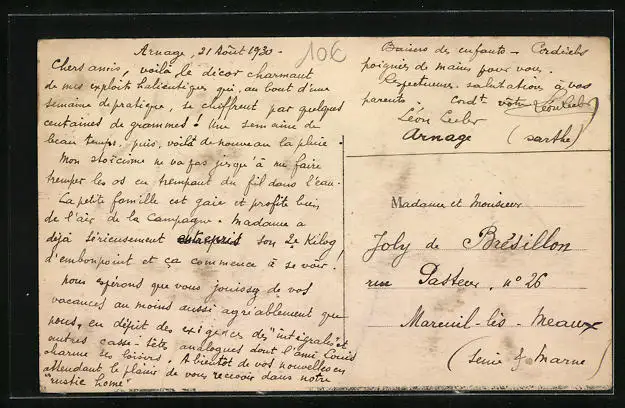 Arnage, 21 Août 1930 -
Chers amis, voilà le décor charmant
de mes exploits halieutiques qui, au bout d'une
semaine de pratique, se chiffrent par quelques
centaines de grammes! Une semaine de
beau temps, puis, voilà de nouveau la pluie.
Mon stoïcisme ne va pas jusqu'à me faire
tremper les os en trempant du fil dans l'eau.
La petite famille est gaie et profite bien
de l'air de la campagne. Madame a
déjà sérieusement son 2e Kilog
d'embonpoint et ça commence à se voir.
Nous espérons que vous jouissez de vos
vacances au moins aussi agréablement que
nous, en dépit des exigences des "intégrales" et
autres casse-tête analogues dont l'ami Louis
charme ses loisirs. A bientôt de vos nouvelles en
attendant le plaisir de vous recevoir dans notre
"rustic home"
10€
Baisers des enfants - Cordiales
poignées de mains pour vous.
Respectueuses salutations à vos
parents. Cordt. vôtre
Léon
Arnage (Sarthe)
Madame et Monsieur
Joly de Brésillon
rue Pasteur, n° 26
Mareuil-lès-Meaux
(Seine & Marne)